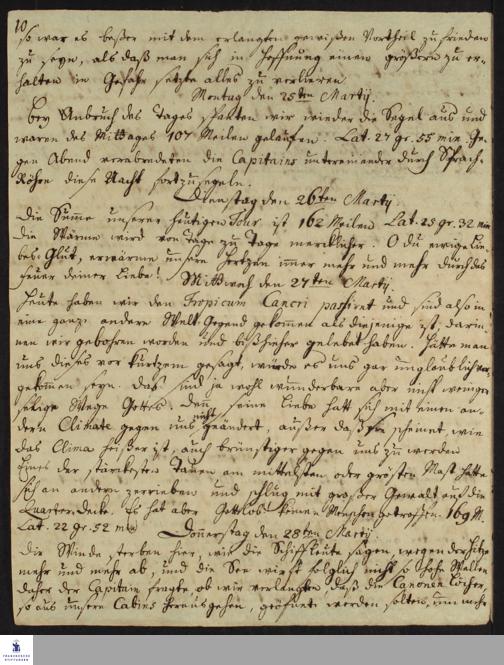 10
so war es beßer mit dem erlangten gewißen Vortheil zufrieden
zu seyn, als daß man sich in Hoffnung einen größern zu er-
halten in Gefahr setzte alles zu verlieren.
Montag den 25ten Martij.
Bey Anbruch des Tages spanten wir wieder die Segel aus und
waren des Mittages 107 Meilen gelaufen. Lat. 27 gr. 55 min. Ge-
gen Abend verabredeten die Capitains untereinander durch Sprach-
Röhre diese Nacht fortzusegeln.
Dienstag den 26ten Martij.
Die Summe unserer heutigen Tour ist 162 Meilen Lat. 25 gr. 32 min
die Wärme wird von Tage zu Tage mercklicher. O du ewige Lie-
bes-Glut, erwärme unsere Hertzen immer mehr und mehr durch das
feuer deiner Liebe!
Mittwoch den 27ten Martij.
Heute haben wir den Tropicum Cancri passiret und sind also in
eine gantz andere Welt-Gegend gekommen als diejenige ist, darin-
nen wir gebohren worden und bißhieher gelebet haben. Hätte man
uns dieses vor kurtzem gesagt, würde es uns gar unglaublich vor-
gekommen seyn. Das sind ja wohl wunderbare aber nicht weniger
selige Wege Gottes. Denn seine Liebe hatt sich mit einem an-
dern Climate gegen uns nicht geändert, außer daß sie scheinet, wie
das Clima heißer ist, auch brünstiger gegen uns zu werden.
Eines der stärcksten Tauen am mittelsten oder grösten Mast hatte
sich an andern zerrieben und schlug mit großer Gewalt auf die
Quarter-Decke. Es hat aber Gottlob keinen Menschen getroffen. 169 M.
Lat. 22 gr. 52 min
Donnerstag den 28ten Martij.
Die Winde sterben hier, wie die Schiffleute sagen, wegen der Hitze
mehr und mehr ab, und die See wirft folglich nicht so hohe Wellen
daher der Capitain fragte ob wir verlangten, daß die Canonen Löcher,
so aus unsern Cabins herausgehen, geöfnet werden solten, nun mehr
FRANCKESCHE
STIFTUNGEN